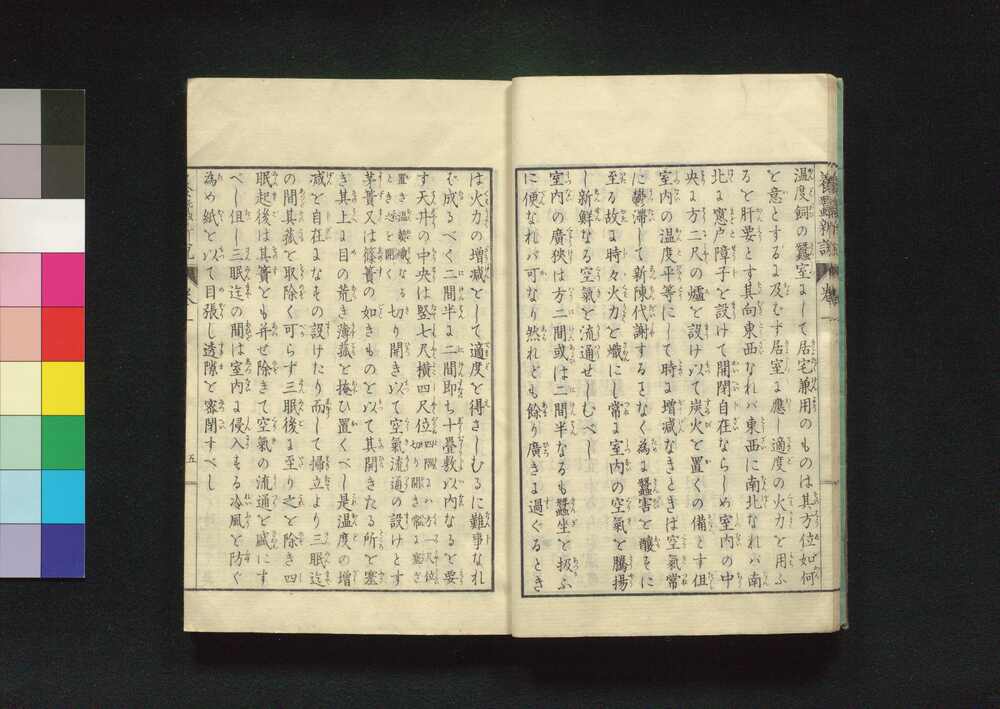 養蠶新說 卷一
温度飼の蠶室にして居宅兼用のものは其方位如何
を意とするに及むず居室に應じ適度の火力を用ふ
るを肝要とす其向東西なれバ東西に南北なれバ南
北に窓戸障子を設けて開閉自在ならしめ室内の中
央に方二尺の爐を設け以て炭火を置くの備とす但
室内の温度平等にして時に増減なきときは空氣常
に欝滯して新陳代謝するとなく為に蠶害を釀そに
至る故に時々火力を熾にし常に室内の空氣を騰揚
し新鮮なる空氣を流通せしむべし
室内の廣狹は方二間或は二間半なるも蠶坐を扱ふ
に便なれバ可なり然れども餘り廣きに過ぐるとき
は火力の增减をして適度を得さしむるに難事なれ
ば成るべく二間半に二間即ち十疊敷以内なるを要
す天井の中央は竪七尺横四尺位四隅にハ方一尺位切り開き常に塞ぎ
置き温熱嚴なるときハ之を開く切り開き以て空氣流通の設けとす
葦簀又は篠簀の如きものを以て其開きたる所を塞
き其上に目の荒き薄蓙を掩ひ置くべし是温度の增
减を自在になもの設けたり而して掃立より三眠迄
の間其蓙を取除く可らず三眠後に至り之を除き四
眠起後は其簀とも并せ除きて空氣の流通を盛にす
べし但し三眠迄の間は室内に侵入もる冷風を防ぐ
為め紙を以て目張し透隙を密閉すべし
五